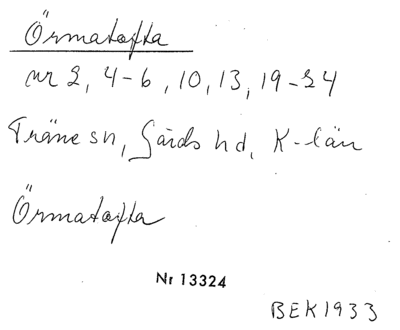 Örmatofta
nr 2, 4-6, 10, 13, 19-24
Träne sn, Gärds hd, K-län
Örmatofta
Nr 13324
BEK1933